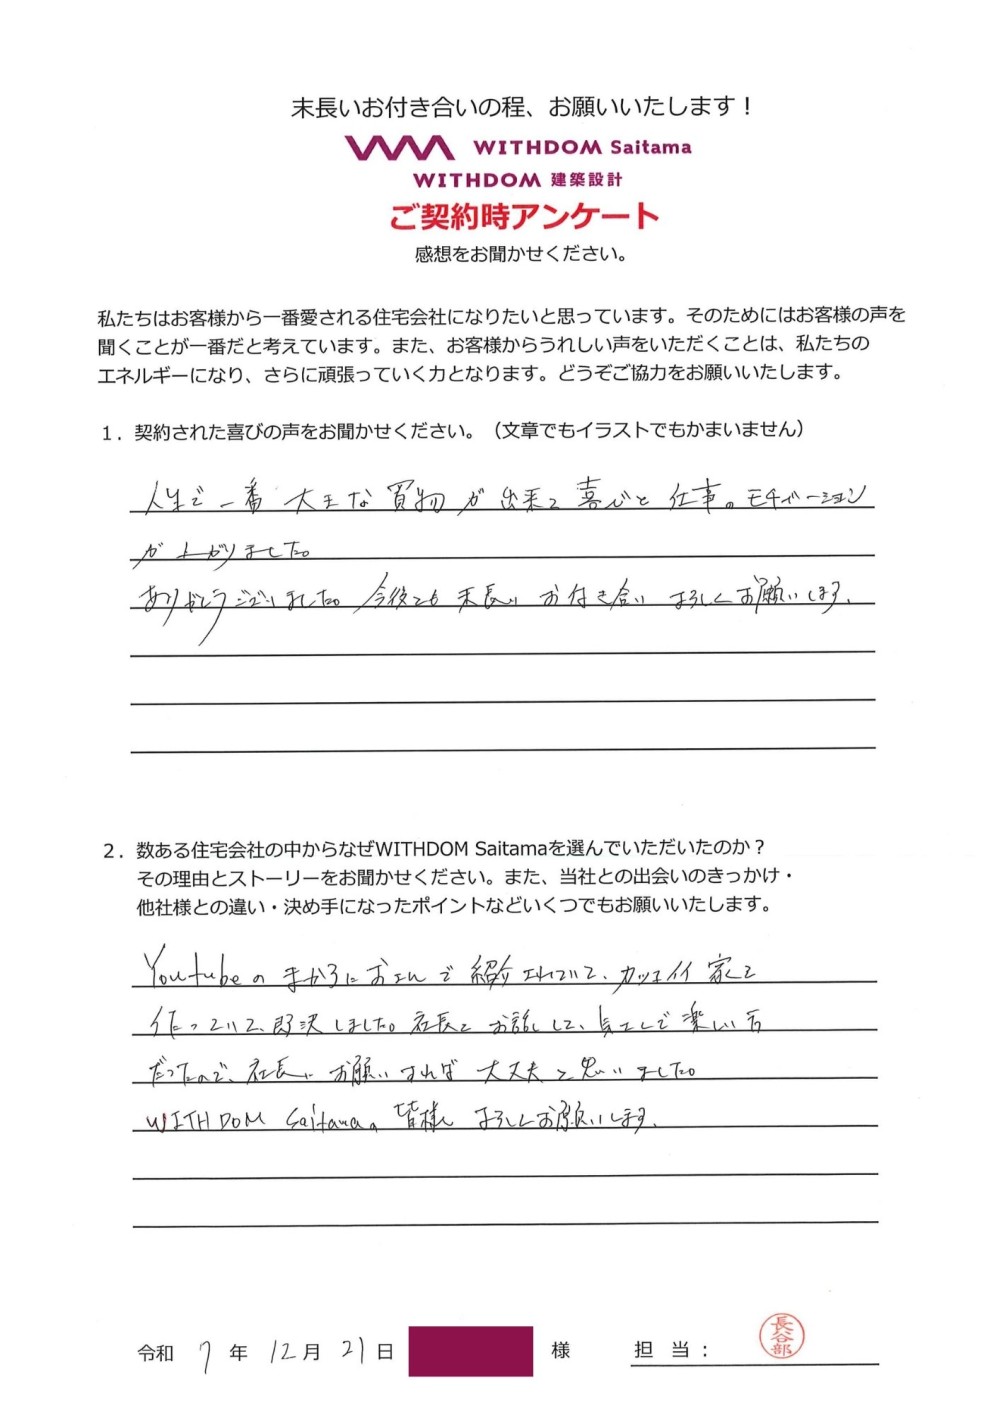 末長いお付き合いの程、お願いいたします！
WITHDOM Saitama
WITHDOM 建築設計
ご契約時アンケート
感想をお聞かせください。
私たちはお客様から一番愛される住宅会社になりたいと思っています。そのためにはお客様の声を
聞くことが一番だと考えています。また、お客様からうれしい声をいただくことは、私たちの
エネルギーになり、さらに頑張っていく力となります。どうぞご協力をお願いいたします。
１．契約された喜びの声をお聞かせください。（文章でもイラストでもかまいません）
人生で一番 大きな買物が出来て喜びと仕事のモチベーション
が上がりました。
ありがとうございました。今後とも末長いお付き合いよろしくお願いします。
２．数ある住宅会社の中からなぜWITHDOM Saitamaを選んでいただいたのか？
その理由とストーリーをお聞かせください。また、当社との出会いのきっかけ・
他社様との違い・決め手になったポイントなどいくつでもお願いいたします。
Youtubeのまかろにおさんで紹介されていて、カッコイイ家を
作っていて、即決しました。社長とお話しして、気さくで楽しい方
だったので、社長にお願いすれば大丈夫と思いました。
WITHDOM Saitamaの皆様よろしくお願いします。
令和 7 年 12 月 21 日 様 担 当：
長谷部